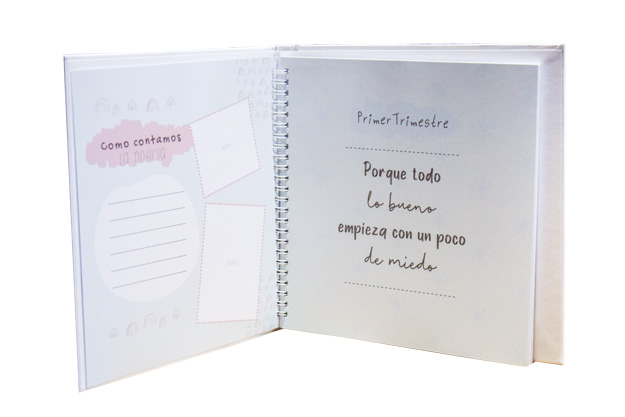 Como contamos
la noticia
Primer Trimestre
Porque todo
lo bueno
empieza con un poco
de miedo